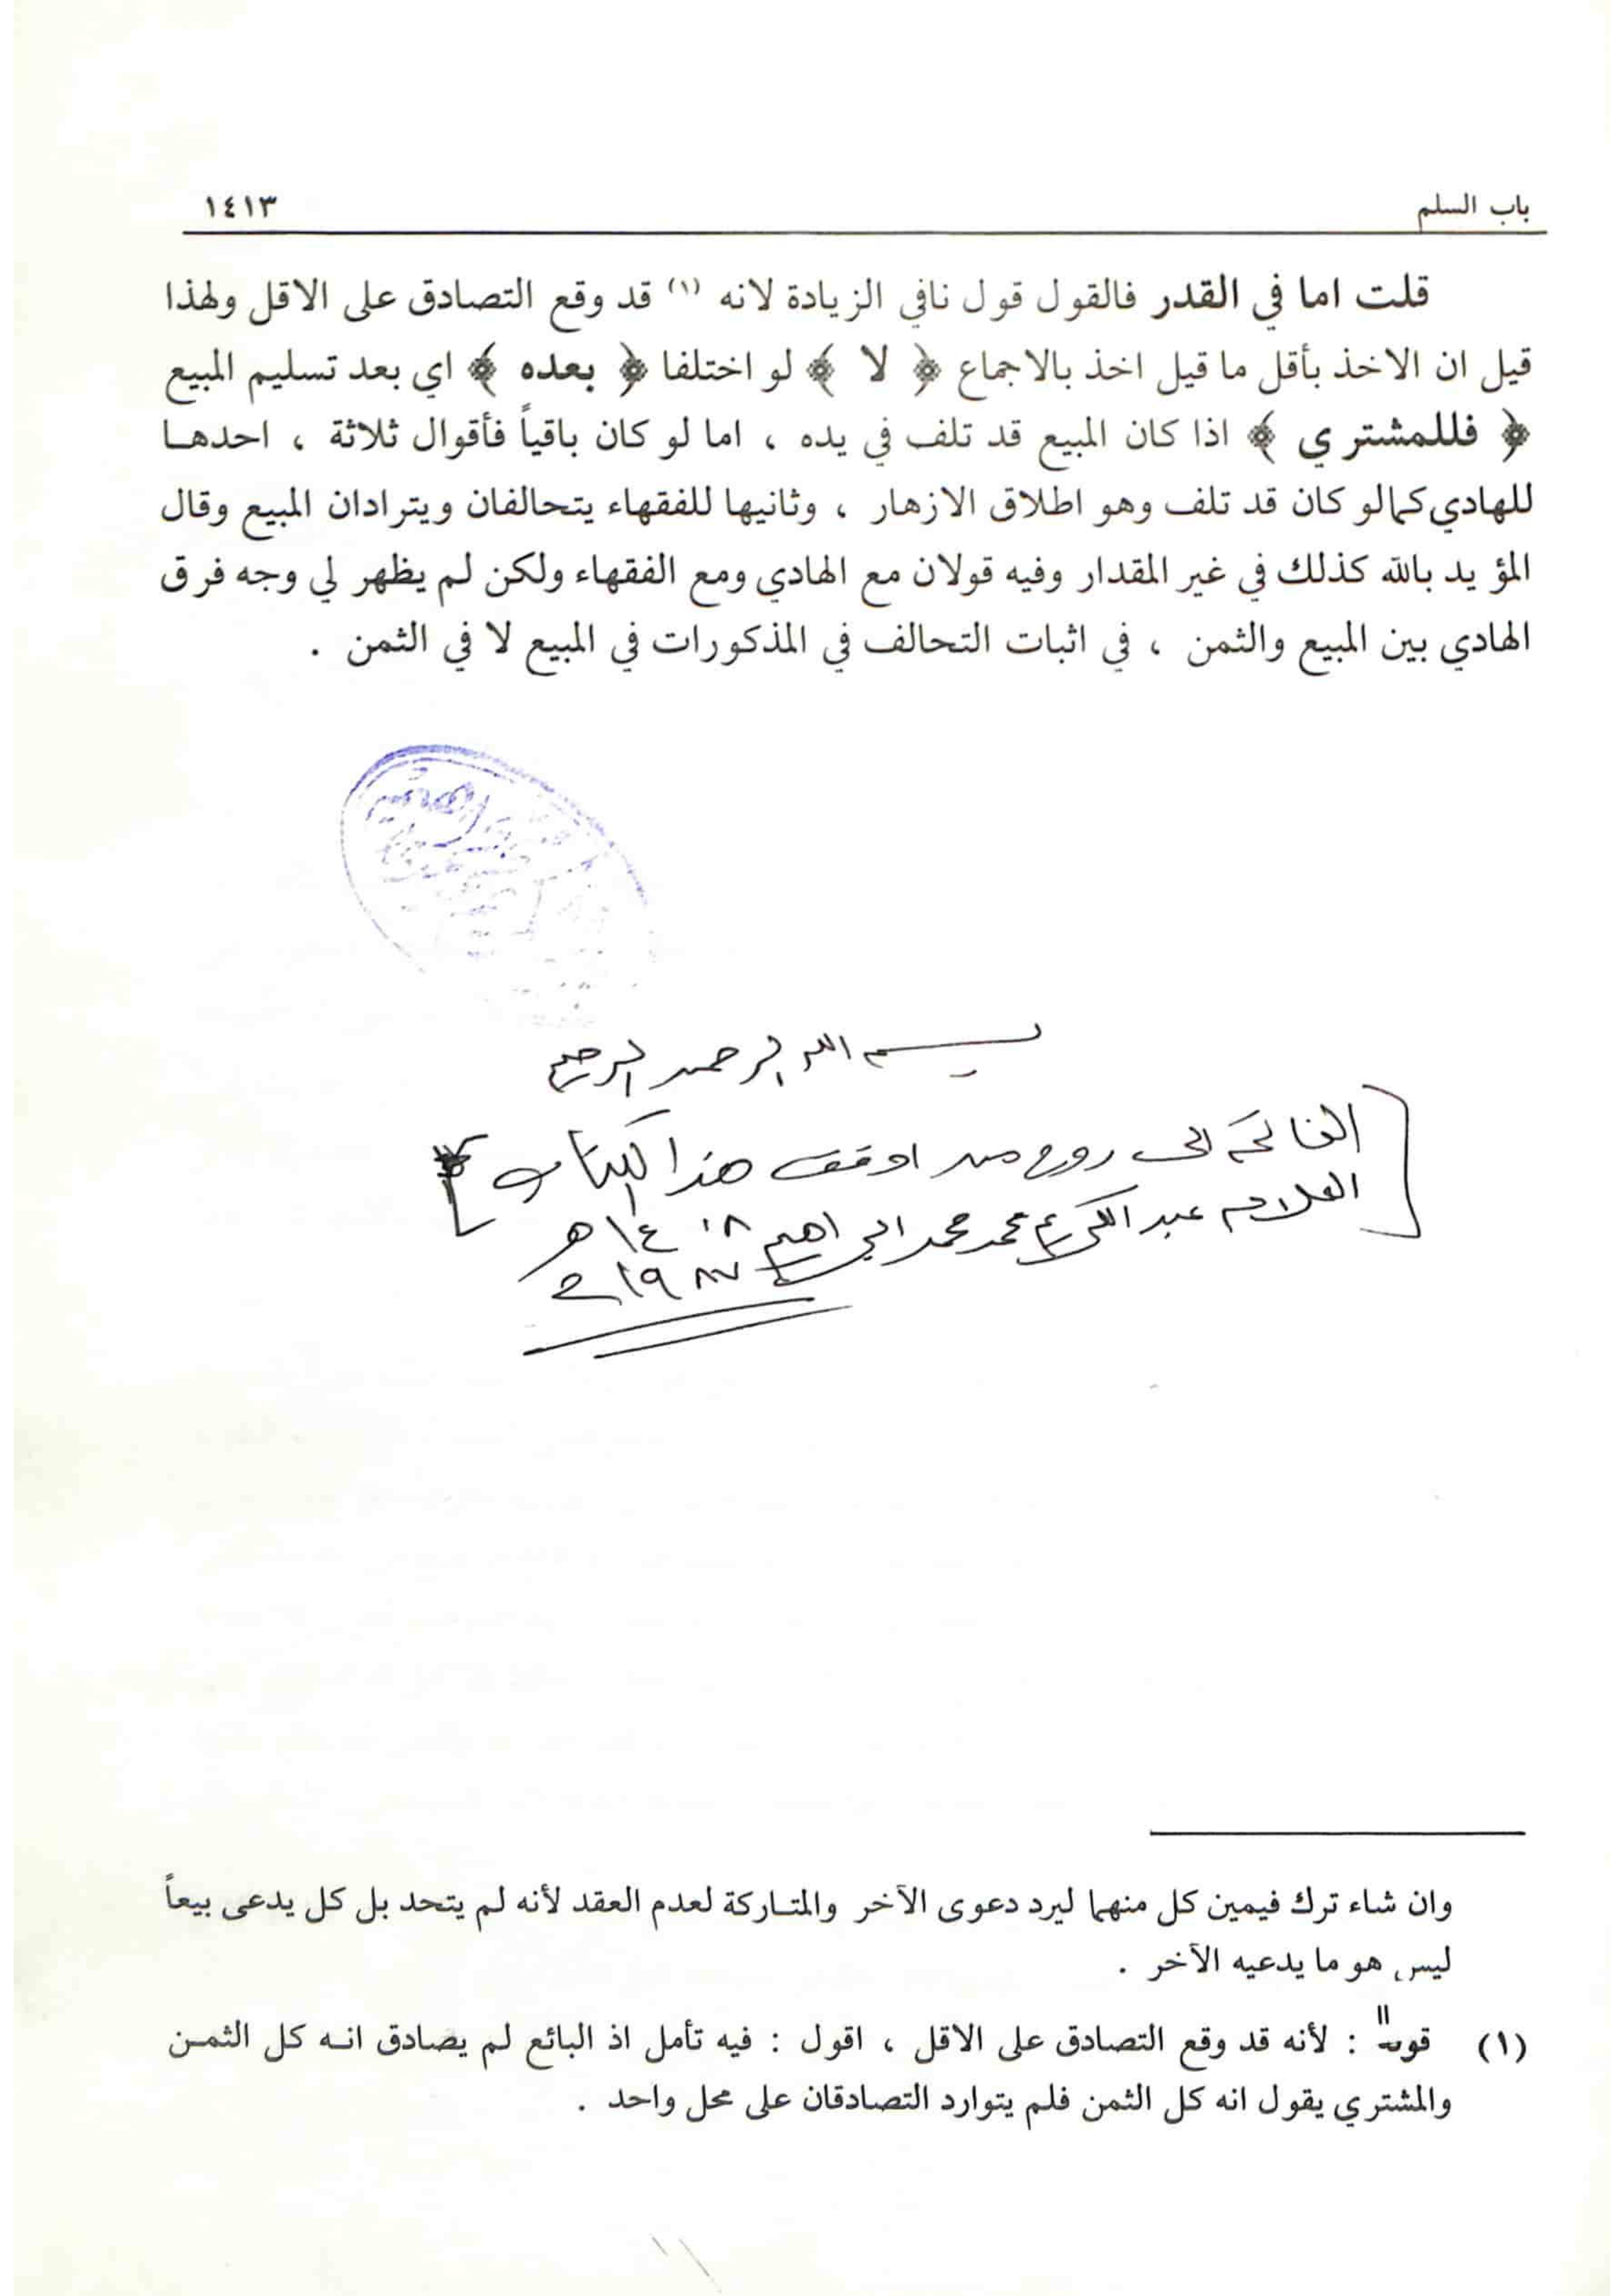 باب السلم ١٤١٣
قلت اما في القدر فالقول قول نافي الزيادة لانه (١) قد وقع التصادق على الاقل ولهذا
قيل ان الاخذ بأقل ما قيل اخذ بالاجماع ﴿ لا ﴾ لو اختلفا ﴿ بعده ﴾ اي بعد تسليم المبيع
﴿ فللمشتري ﴾ اذا كان المبيع قد تلف في يده ، اما لو كان باقياً فأقوال ثلاثة ، احدهـا
للهادي كما لو كان قد تلف وهو اطلاق الازهار ، وثانيها للفقهاء يتحالفان ويترادان المبيع وقال
المؤيد بالله كذلك في غير المقدار وفيه قولان مع الهادي ومع الفقهاء ولكن لم يظهر لي وجه فرق
الهادي بين المبيع والثمن ، في اثبات التحالف في المذكورات في المبيع لا في الثمن .
بسم الله الرحمن الرحيم
[الفاتحة الى روح من اوقف هذا الكتاب
العلامه عبد الكريم محمد محمد ابراهيم ١٤٠٨ هـ]
١٩٨٧ م
وان شاء ترك فيمين كل منهما ليرد دعوى الآخر والمتـاركة لعدم العقد لأنه لم يتحد بل كل يدعى بيعاً
ليس هو ما يدعيه الآخر .
(١) قوله : لأنه قد وقع التصادق على الاقل ، اقول : فيه تأمل اذ البائع لم يصادق انـه كل الثمـن
والمشتري يقول انه كل الثمن فلم يتوارد التصادقان على محل واحد .